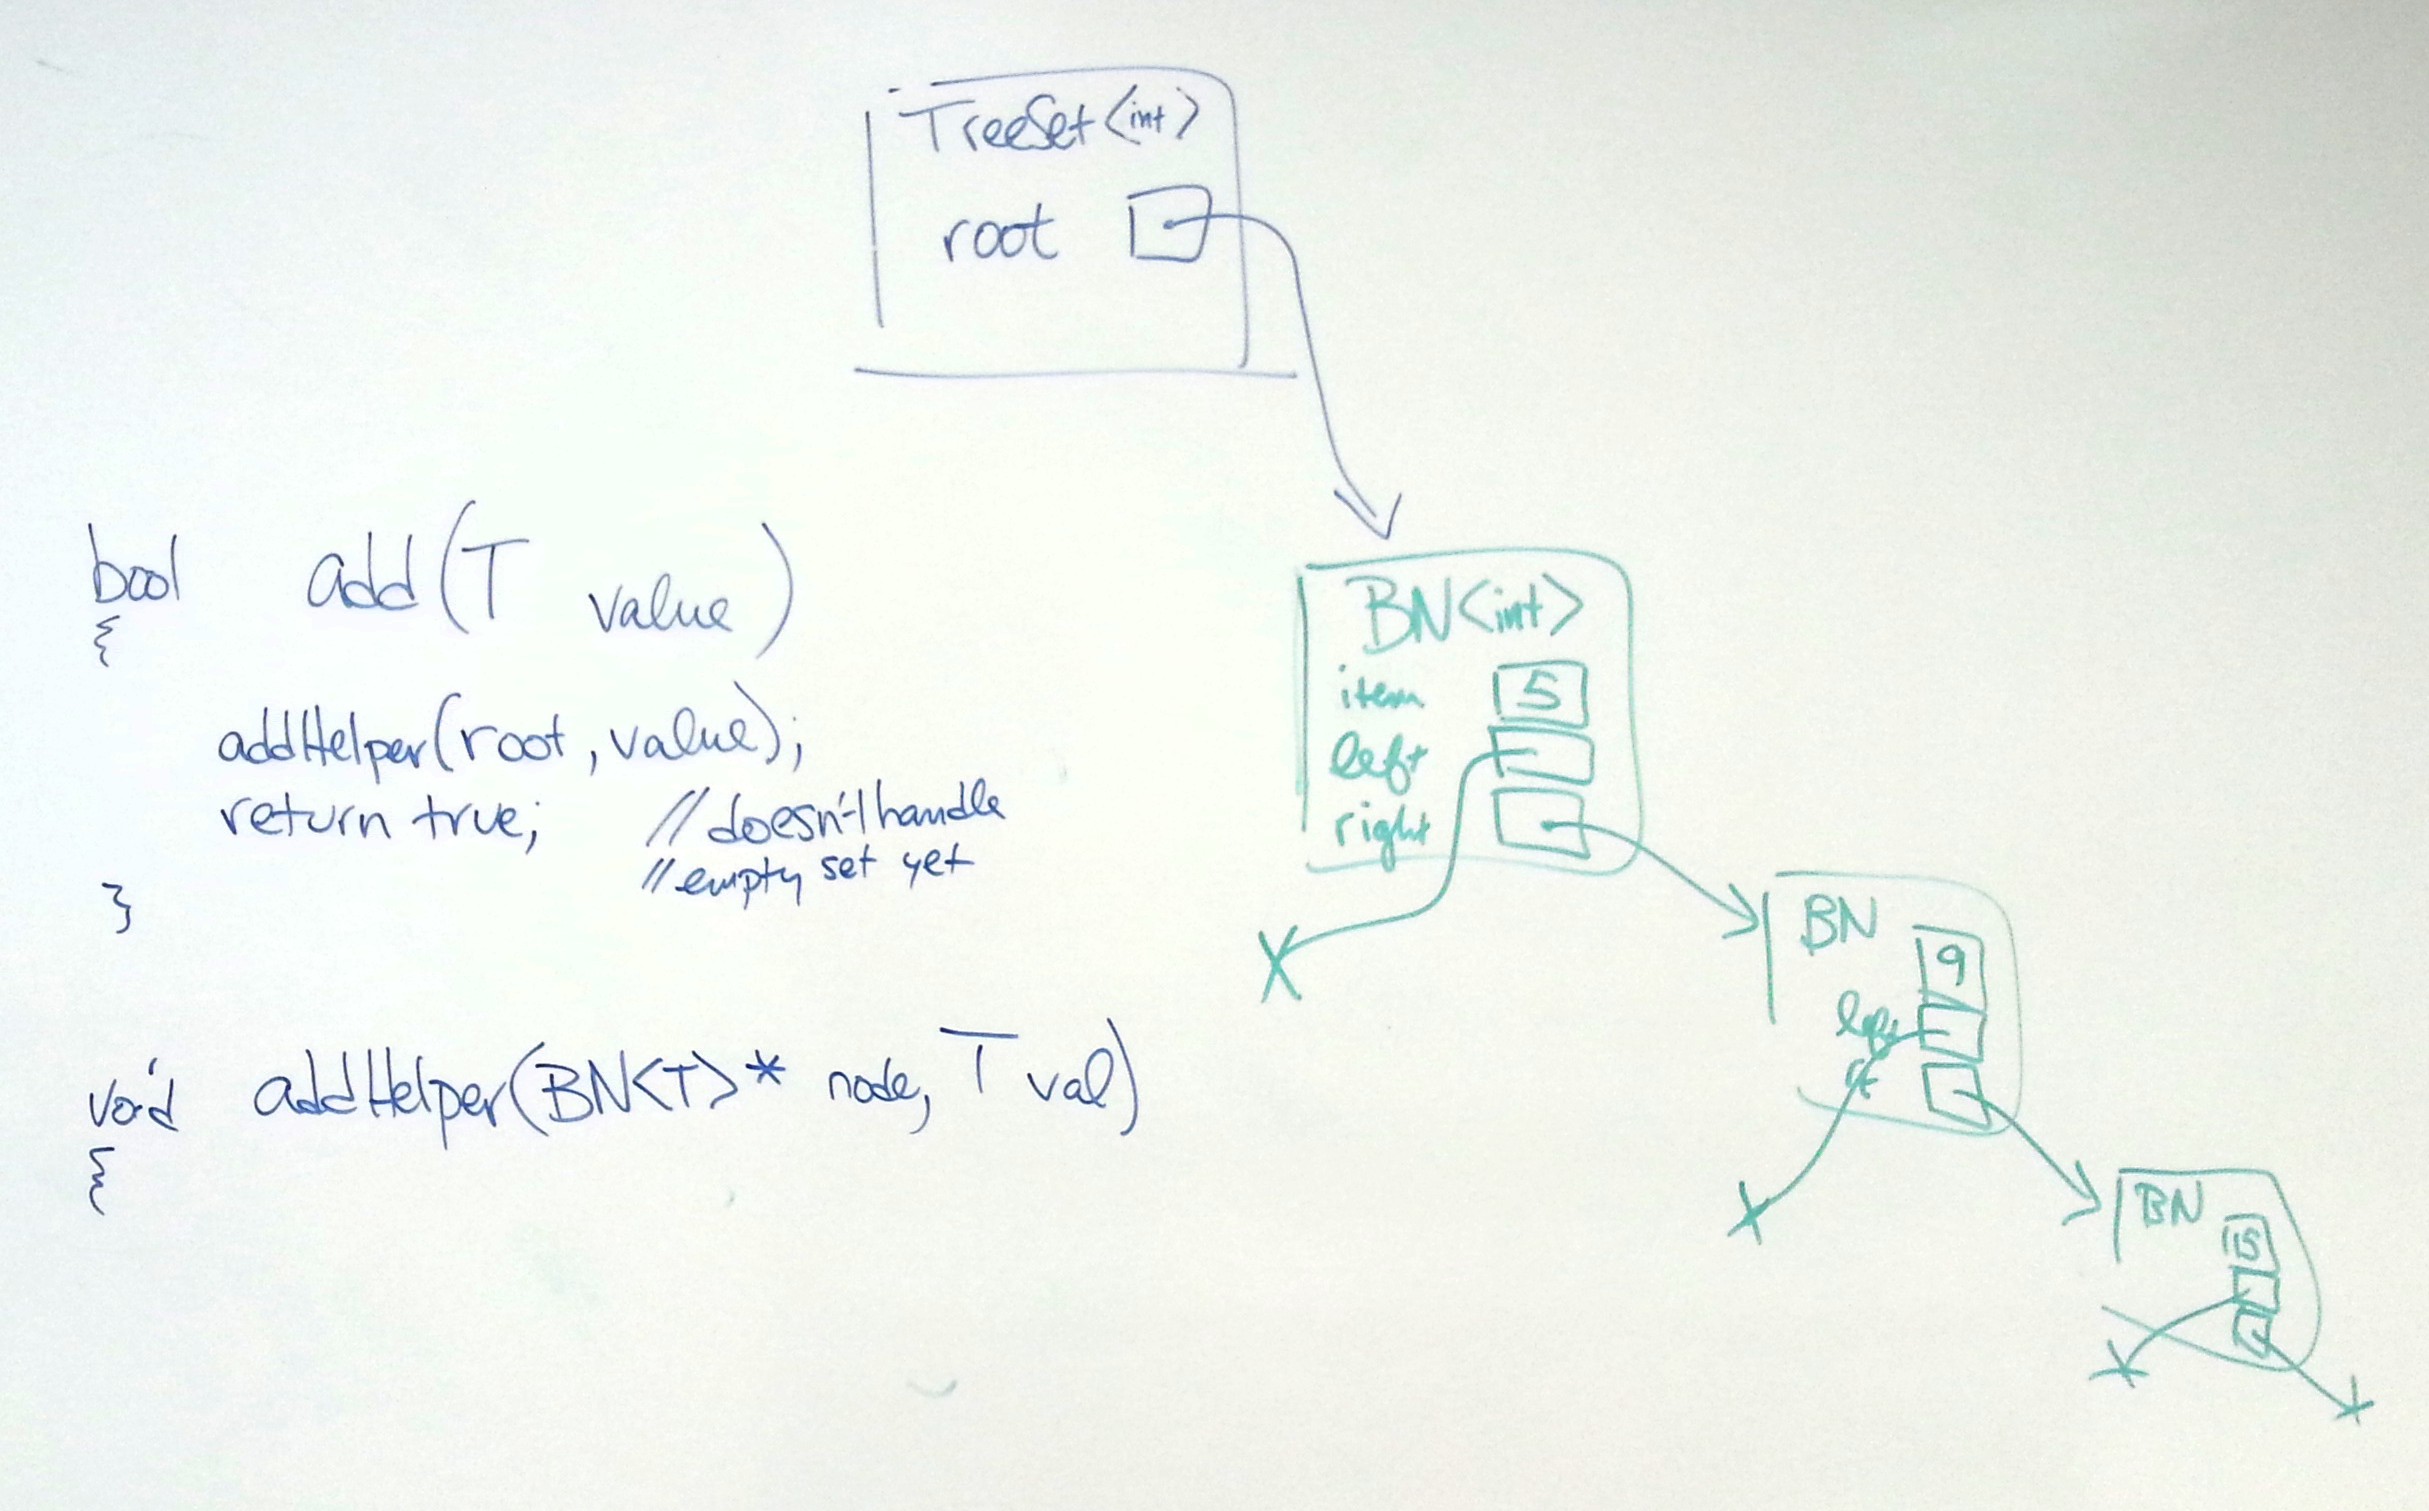 TreeSet<int>
root
bool add(T value)
{
addHelper(root, value);
return true; //doesn't handle
//empty set yet
}
void addHelper(BN<T>* node, T val)
{
BN<int>
item 5
left
right
BN
9
left
rt
BN
15